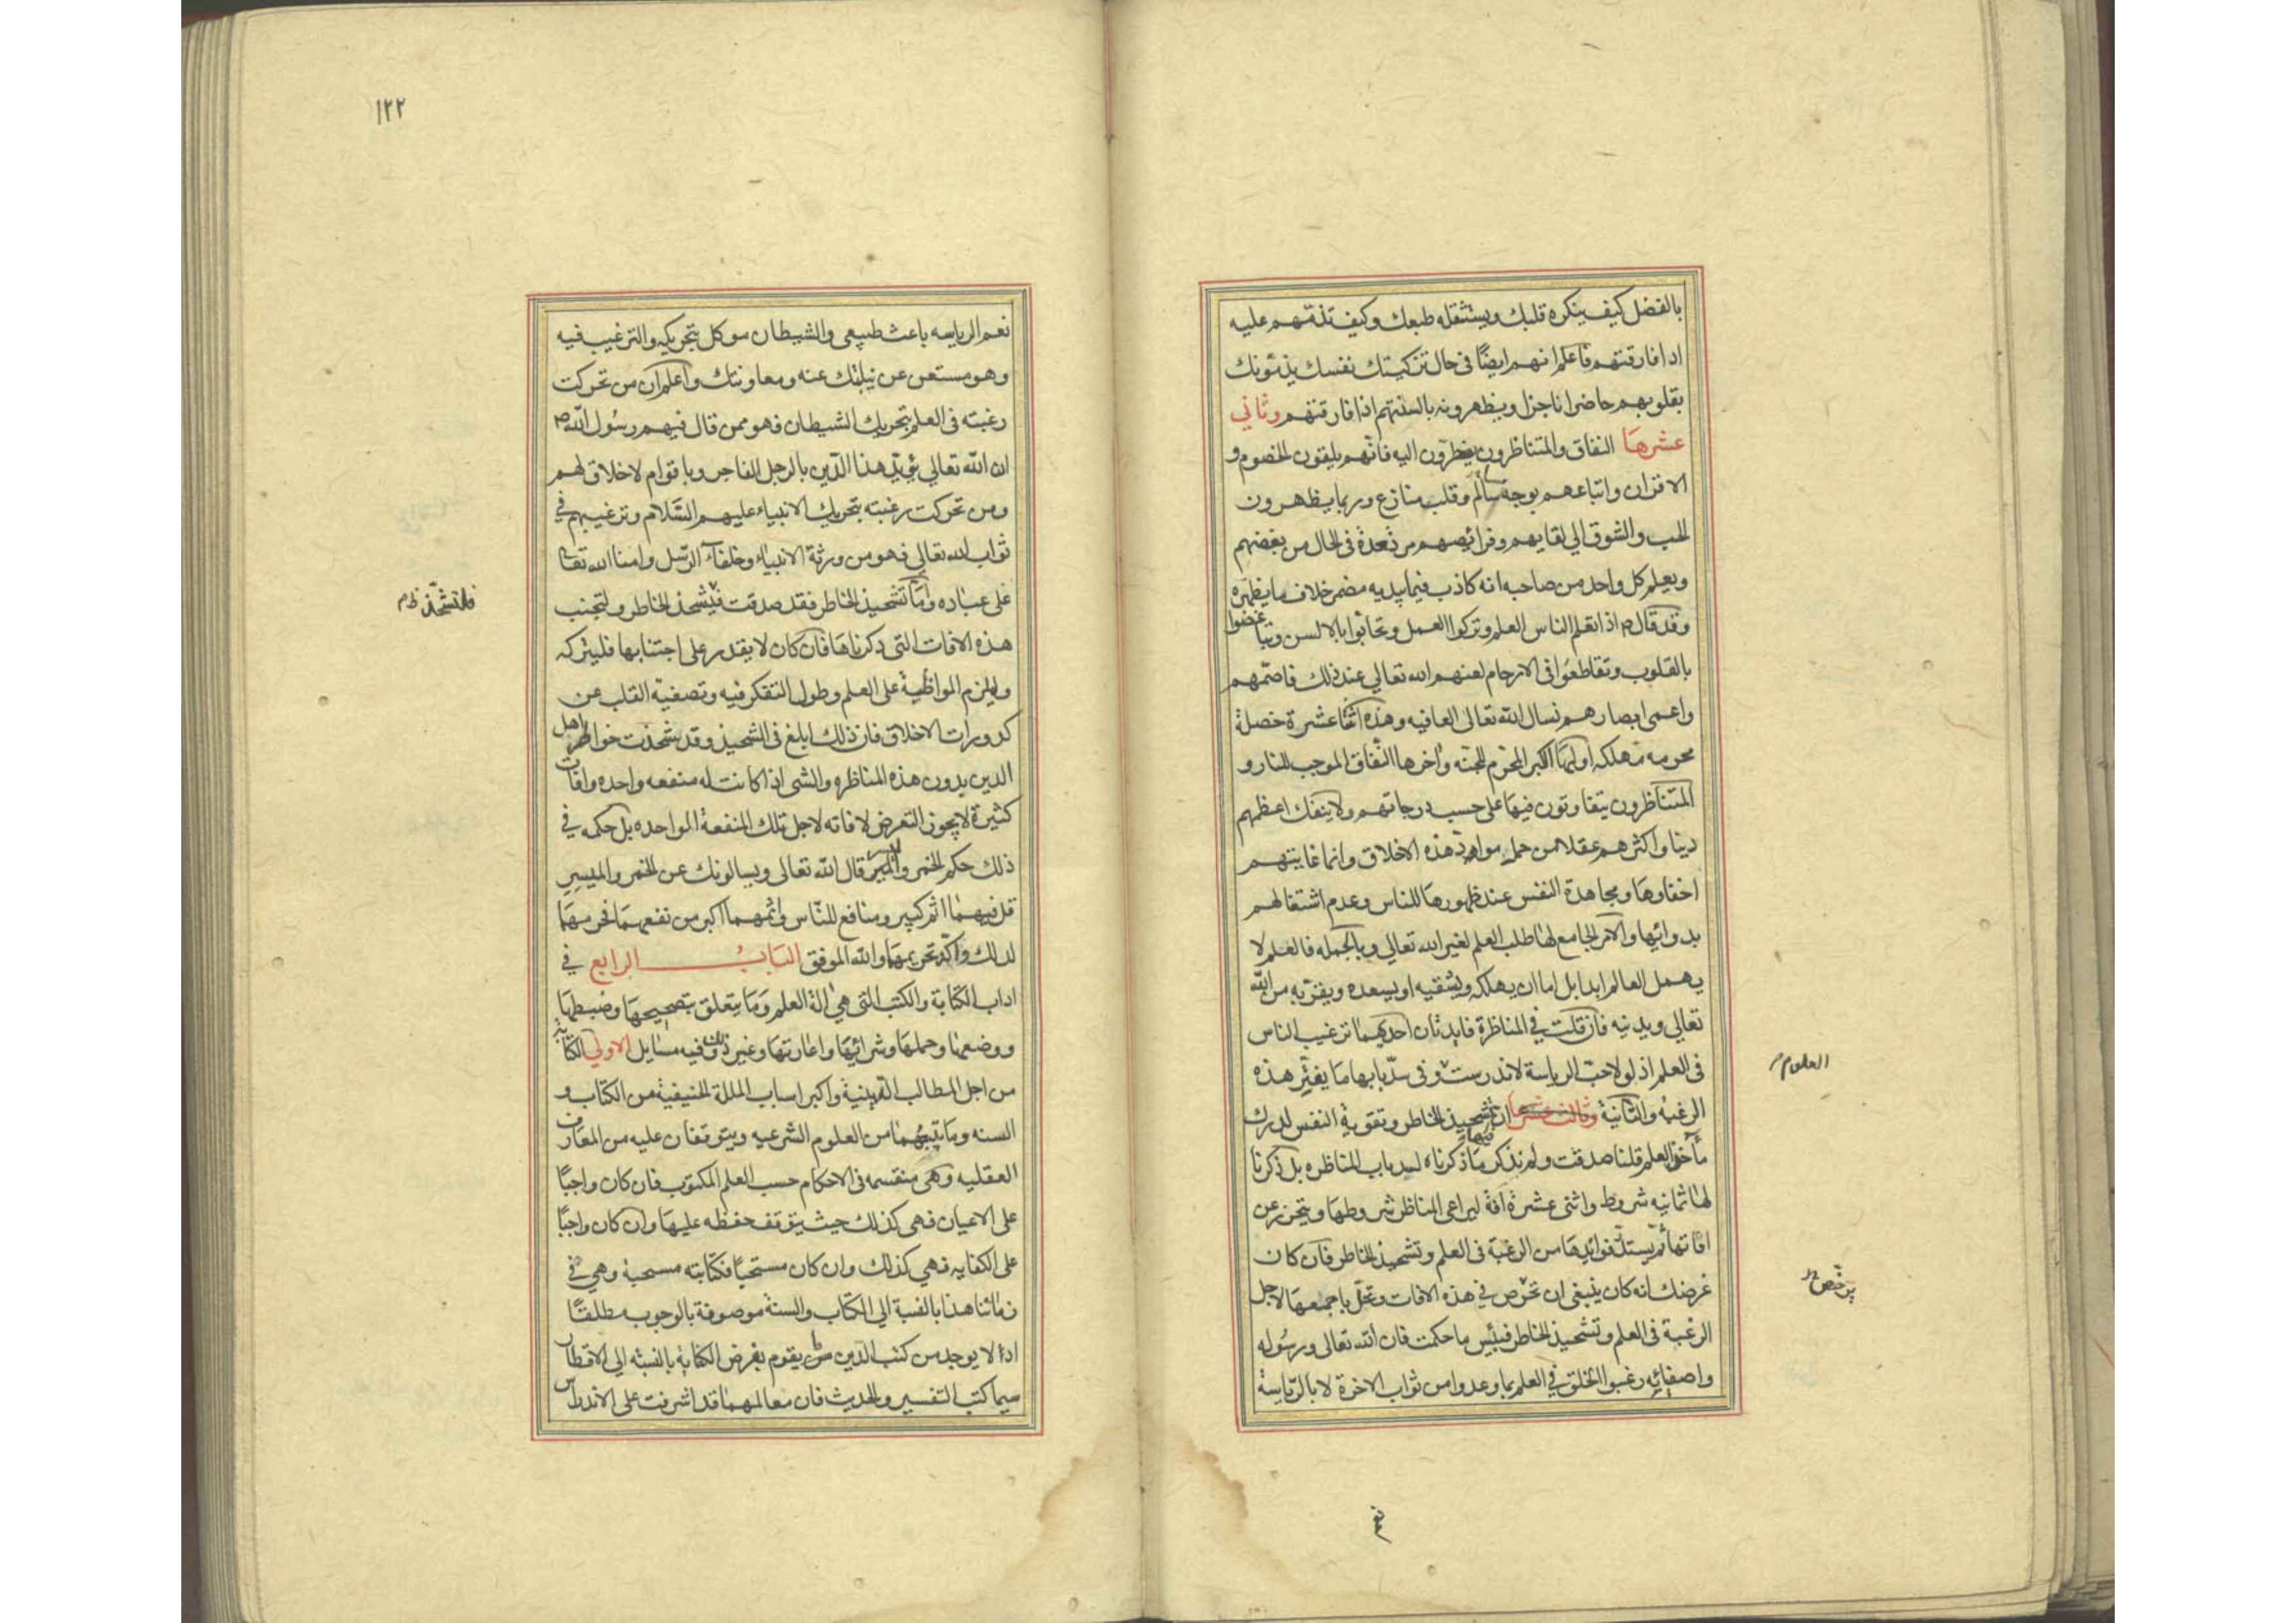 بالفضل كيف ينكره قلبك ويستثقله طبعك وكيف تذمهم عليه
اذا فارقتهم فاعلم انهم ايضًا فى حال تزكيتك نفسك يذمونك
بقلوبهم حاضرا ناجزا ويظهرونه بالسنتهم اذا فارقتهم وثاني
عشرها النفاق والمتناظرون يضطرون اليه فانهم يلقون الخصوم و
الاقران واتباعهم بوجه سالم وقلب منازع وربما يظهرون
الحب والشوق الي لقايهم وفرائصهم مرتعدة فى الحال من بغضهم
ويعلم كل واحد من صاحبه انه كاذب فيما يبديه مضمر خلاف ما يظهره
وقد قال ص اذا تعلم الناس العلم وتركوا العمل وتحابوا بالالسن وتباغضوا
بالقلوب وتقاطعوا فى الارحام لعنهم الله تعالي عند ذلك فاصمّهم
واعمى ابصارهم نسال الله تعالى العافيه وهذه اثنا عشرة خصلة
محرمه مهلكه اولها الكبر المحرّم للجنه واخرها النفاق الموجب للنار و
المتناظرون يتفاوتون فيها على حسب درجاتهم ولا ينفك اعظمهم
دينا واكثرهم عقلا من حمل مواد هذه الاخلاق وانما غايتهم
اخفاوها ومجاهدة النفس عند ظهورها للناس وعدم اشتغالهم
بدوائها والامر الجامع لها طلب العلم لغير الله تعالي وبالجمله فالعلم لا
يهمل العالم ابدا بل اما ان يهلكه ويشقيه او يسعده ويقرّبه من الله
تعالي ويدنيه فان قلت في المناظرة فايدتان احديهما ترغيب الناس
فى العلم اذ لولا حبّ الرياسة لاندرست وفى سدّ بابها ما يفتر هذه
العلوم
الرغبه والثانية وثالث عشرها ان فيها تشحيذ الخاطر وتقوية النفس لدرك
مآخذ العلم قلنا صدقت ولم نذكر ما ذكرناه لسد باب المناظره بل ذكرنا
لها ثمانيه شروط واثنى عشرة افة ليراعى المناظر شروطها ويتحرز عن
افاتها ثم يستدر فوائدها من الرغبة فى العلم وتشحيذ الخاطر فان كان
غرضك انه كان ينبغى ان تخرص في هذه الافات وتحل باجمعها لاجل
يرخّص
الرغبة فى العلم وتشحيذ الخاطر فبئس ما حكمت فان الله تعالى ورسُوله
واصفيائه رغبوا الخلق في العلم بما وعدوا من ثواب الاخرة لا بالرّياسة
نعم
١٢٢
نعم الرياسه باعث طبيعى والشيطان موكل بتحريكه والترغيب فيه
وهو مستغن عن نيابتك عنه ومعاونتك واعلم ان من تحركت
رغبته فى العلم بتحريك الشيطان فهو ممن قال فيهم رسُول الله ص
ان الله تعالي يؤيد هذا الدّين بالرجل الفاجر وباقوام لا خلاق لهم
ومن تحركت رغبته بتحريك الانبياء عليهم السّلام وترغيبهم في
ثواب الله تعالي فهو من ورثة الانبياء وخلفاء الرّسل وامنا الله تعا
على عباده وامّا تشحيذ الخاطر فقد صدقت فليشحذ الخاطر وليجتنب
فلتشحّذ
هذه الافات التى ذكرناها فان كان لا يقدر على اجتنابها فليتركه
وليلزم المواظبة على العلم وطول التفكر فيه وتصفية القلب عن
كدورات الاخلاق فان ذلك ابلغ فى التشحيذ وقد تشحذت خواطر اهل
الدين بدون هذه المناظره والشى اذا كانت له منفعه واحده وافات
كثيرة لا يجوز التعرض لافاته لاجل تلك المنفعة الواحده بل حكمه في
ذلك حكم الخمر والميسر قال الله تعالى ويسالونك عن الخمر والميسر
قل فيهما اثم كبير ومنافع للنّاس واثمهما اكبر من نفعهما فحرمهما
لذلك واكّد تحريمهما والله الموفق البَابُ الرابع في
اداب الكتابة والكتب التى هي الة العلم وَمَا يتعلق بتصحيحها وضبطها
ووضعها وحملها وشرائها واعارتها وغير ذلك وفيه مسايل الاولي الكتابة
من اجل المطالب الدّينية واكبر اسباب الملة الحنيفية من الكتاب و
السنه وما يتبعهما من العلوم الشرعيه ويتوقفان عليه من المعارف
العقليه وهى منقسمه فى الاحكام حسب العلم المكتوب فان كان واجبًا
على الاعيان فهى كذلك حيث يتوقف حفظه عليها وان كان واجبًا
على الكفايه فهي كذلك وان كان مستحبًا فكتابته مستحبة وهي في
زماننا هذا بالنسبة الي الكتاب والسنة موصوفة بالوجوب مطلقًا
اذ لا يوجد من كتب الدّين ما يقوم بفرض الكفاية بالنسبه الي الاقطار
سيما كتب التفسير والحديث فان معالمهما قد اشرفت على الاندراس